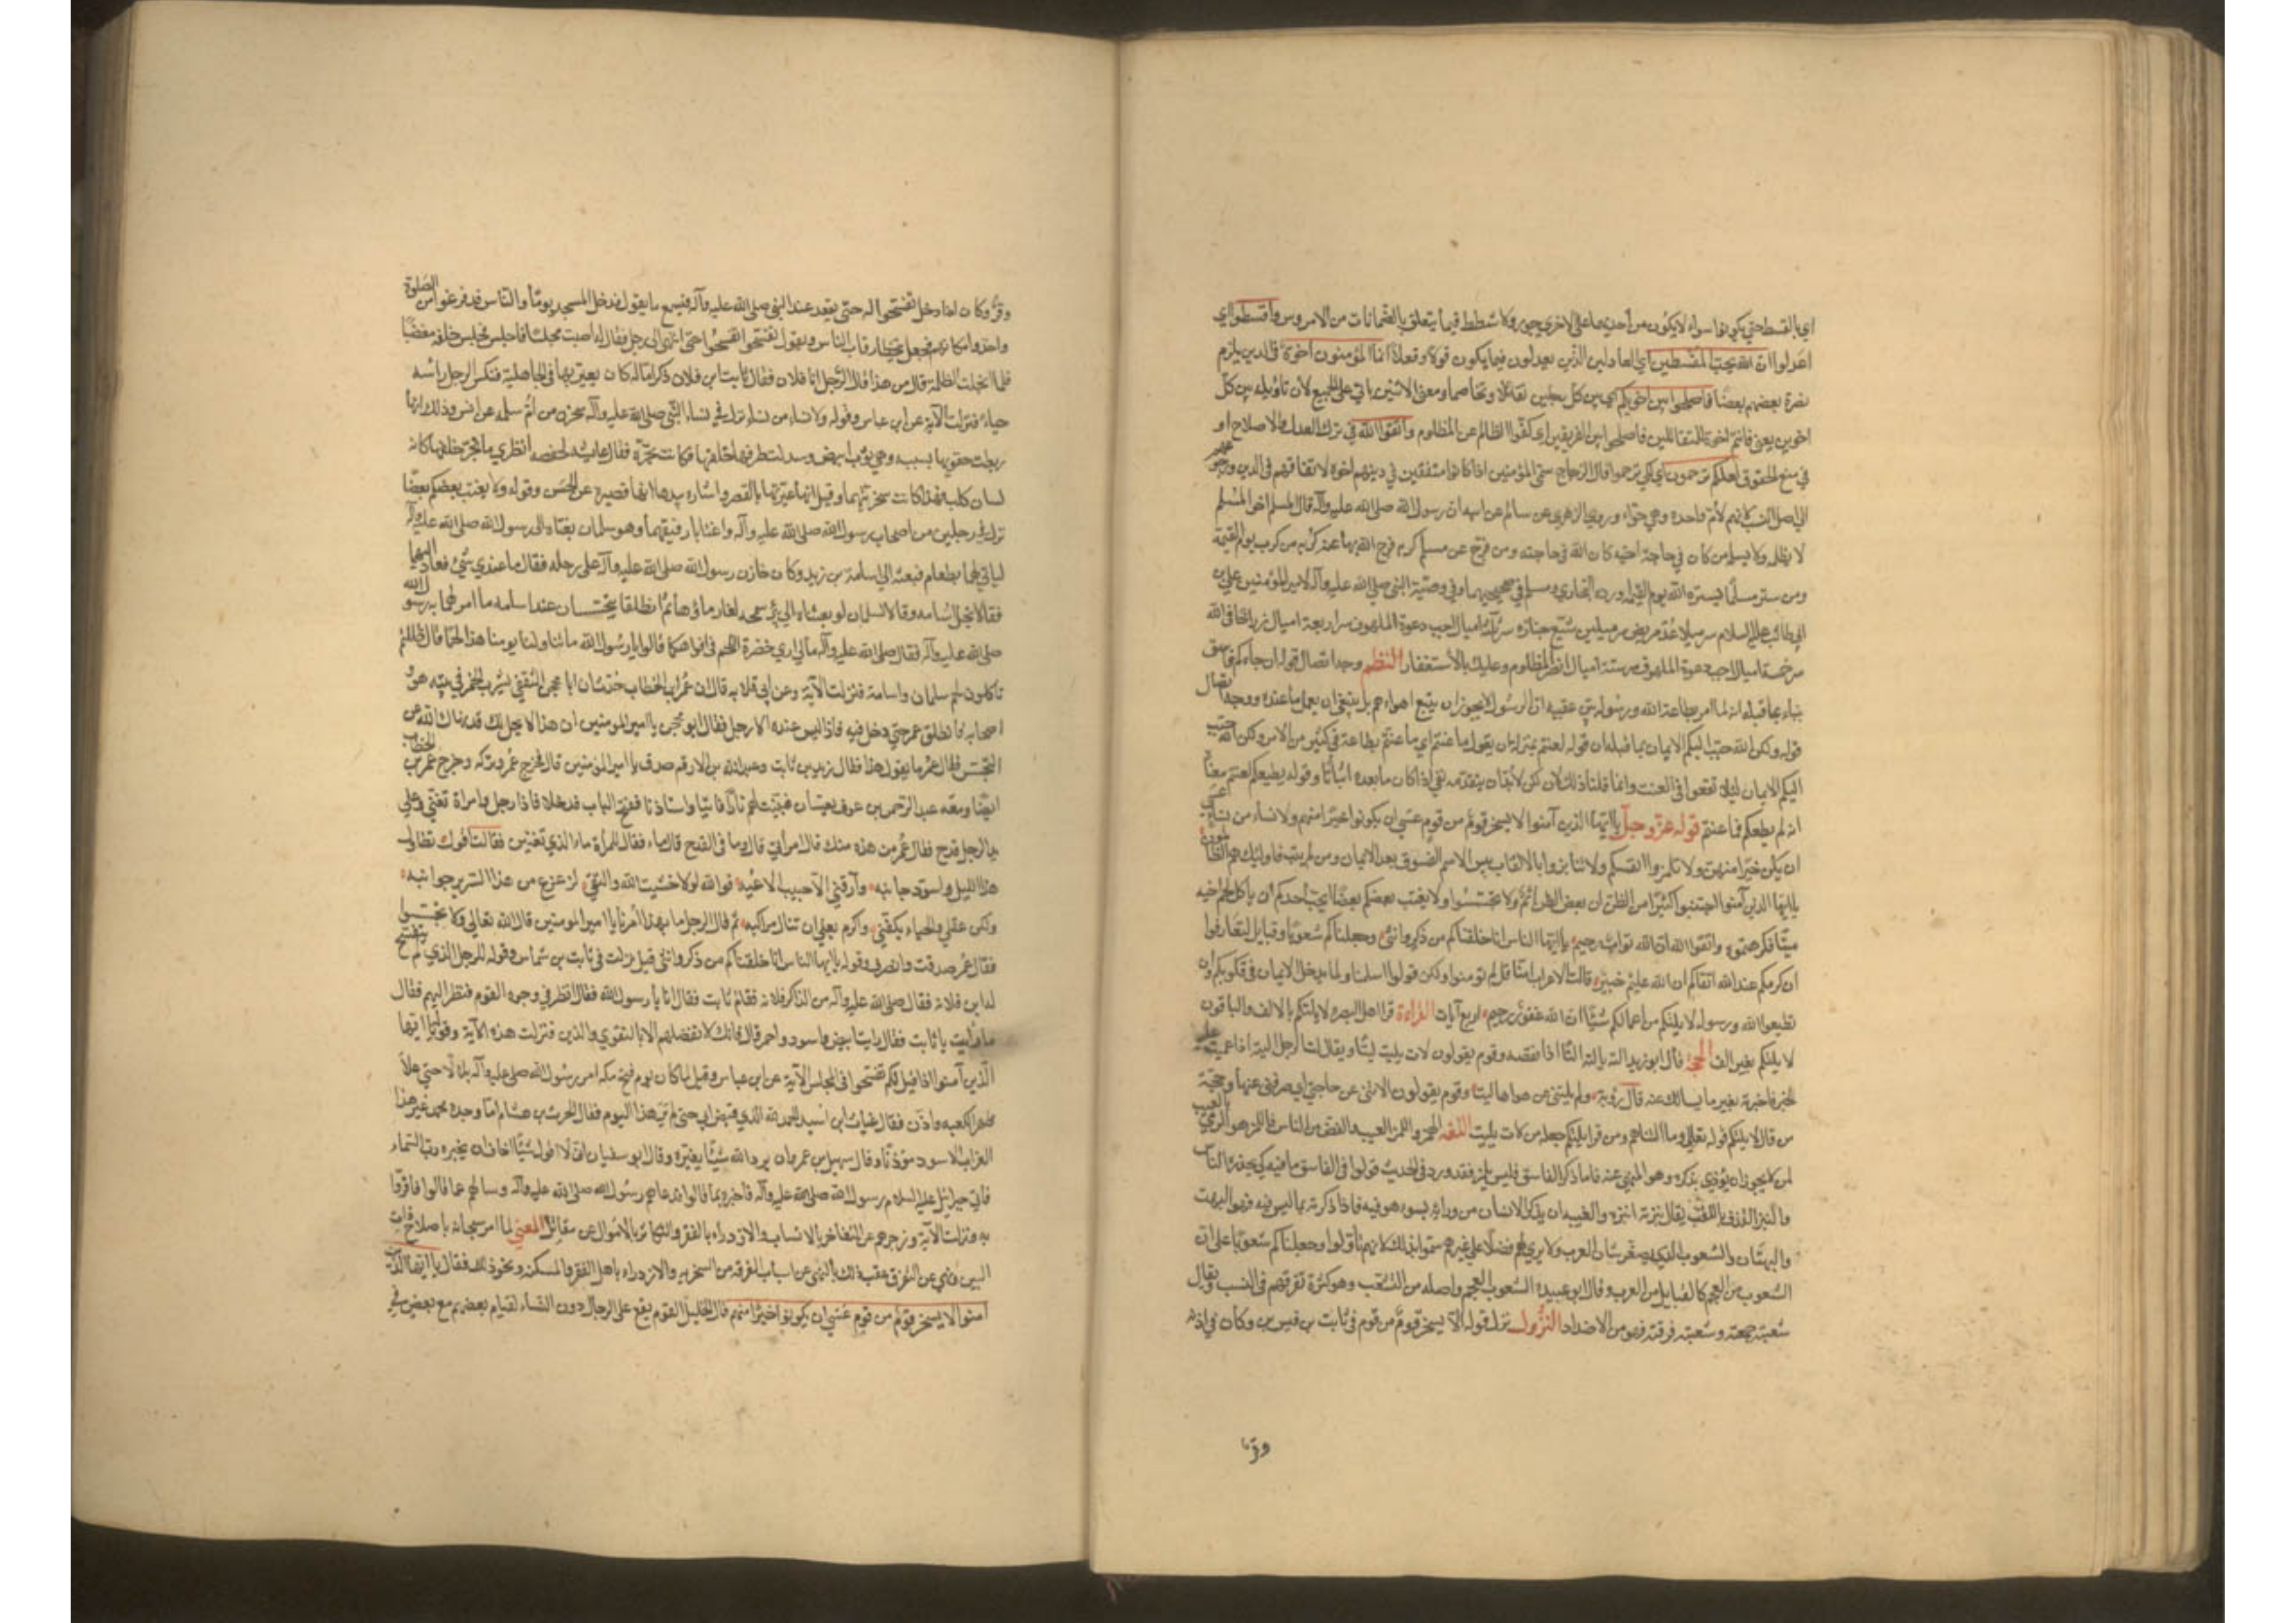 اي بالقسط حتي يكونوا سواء لا يكون من احديهما على الاخري جور ولا شطط فيما يتعلق بالضمانات من الاروش واقسطوا اي
اعدلوا ان الله يحبّ المقسطين اي العادلين الذين يعدلون فيما يكون قولا وفعلا انما المؤمنون اخوة في الدين يلزم
نصرة بعضهم بعضًا فاصلحوا بين اخويكم اي بين كل رجلين تقاتلا وتخاصما ومعنى الاثنين ياتي على الجمع لان تاويله بين كلّ
اخوين يعني فانتم اخوة للمتقاتلين فاصلحوا بين الفريقين اي كفّوا الظالم عن المظلوم واتقوا الله في ترك العدل والاصلاح او
في منع الحقوق لعلكم ترحمون اي لكي ترحموا قال الزجاج سمّى المؤمنين اذا كانوا متفقين في دينهم اخوة لاتفاقهم في الدين ورجوعهم
الي اصل النسب لانهم لأم واحدة وهي حوّاء وروي الزهري عن سالم عن ابيه ان رسول الله صلى الله عليه وآله قال المسلم اخو المسلم
لا يظلمه ولا يسلمه من كان في حاجة اخيه كان الله في حاجته ومن فرّج عن مسلم كربة فرّج الله بها عنه كربة من كرب يوم القيمة
ومن ستر مسلمًا يستره الله يوم القيمة اورده البخاري ومسلم في صحيحيهما وفي وصية النبي صلى الله عليه وآله لامير المؤمنين علي بن
ابي طالب عليه السلام سر ميلا عُد مريضًا سر ميلين شيّع جنازة سر ثلثة اميال اجب دعوة سر اربعة اميال زر اخا في الله
سر خمسة اميال اجب دعوة الملهوف سر ستة اميال انصر المظلوم وعليك بالاستغفار النظم وجه اتصال قوله ان جاءكم فاسق
بنباء بما قبله انه لما امر بطاعة الله ورسوله بيّن عقيبه ان الرسول لا يجوز ان يتبع اهواءهم بل ينبغي ان يعمل بما عنده ووجه اتصال
قوله ولكن الله حبّب اليكم الايمان بما قبله ان قوله لعنتم بمنزلة ان يقول ما عنتم اي ما عنتم بطاعته في كثير من الامر ولكن الله حبّب
اليكم الايمان ليلا تقعوا في العنت وانما قلنا ذلك لان لكن لا بد ان يتقدمه نفي اذا كان ما بعده اثباتًا وقوله يطيعكم لعنتم معناه
انه لم يطعكم فما عنتم قوله عزّ وجلّ يا ايّها الذين آمنوا لا يسخر قوم من قوم عسى ان يكونوا خيرًا منهم ولا نساء من نساء عسى
ان يكن خيرًا منهن ولا تلمزوا انفسكم ولا تنابزوا بالالقاب بئس الاسم الفسوق بعد الايمان ومن لم يتب فاوليك هم الظالمون
يا ايّها الذين آمنوا اجتنبوا كثيرًا من الظن ان بعض الظن اثم ولا تجسّسوا ولا يغتب بعضكم بعضًا ايحبّ احدكم ان ياكل لحم اخيه
ميتًا فكرهتموه واتقوا الله ان الله توّاب رحيم يا ايّها الناس انا خلقناكم من ذكر وانثى وجعلناكم شعوبًا وقبايل لتعارفوا
ان اكرمكم عند الله اتقاكم ان الله عليم خبير قالت الاعراب امنّا قل لم تؤمنوا ولكن قولوا اسلمنا ولما يدخل الايمان في قلوبكم وان
تطيعوا الله ورسوله لا يلتكم من اعمالكم شيئًا ان الله غفور رحيم اربع آيات القراءة قرا اهل البصرة لا يالتكم بالالف والباقون
لا يلتكم بغير الف الحجة قال ابو زيد الته يالته التًا اذا نقصه وقوم يقولون لات يليت ليتًا ويقال لتّ الرجل اليته اذا عميت عليه
الخبر فاخبرته بغير ما يسالك عنه قال رؤبة ولم يلتني عن هواها ليت وقوم يقولون الاتني عن حاجتي اي صرفني عنها وحجّة
من قال لا يالتكم قوله تعالى وما التناهم ومن قرا يلتكم جعله من لات يليت اللغة الهمز واللمز العيب والغضّ من الناس فاللمز هو الرمي بالعيب
لمن لا يجوز ان يؤذي بذكره وهو المنهي عنه فاما ذكر الفاسق فليس بلمز فقد ورد في الحديث قولوا في الفاسق ما فيه كي يحذره الناس
والنبز القذف باللقب يقال نبزته انبزه والغيبة ان يذكر الانسان من ورائه بسوء هو فيه فاذا ذكرته بما ليس فيه فهو البهت
والبهتان والشعوب الذي يصغّر شان العرب ولا يري لهم فضلا على غيرهم سمّوا بذلك لانهم تأولوا وجعلناكم شعوبًا على ان
الشعوب من العجم كالقبايل من العرب وقال ابو عبيدة الشعوب العجم واصله من التشعّب وهو كثرة تفرقهم في النسب ويقال
شعبته جمعته وشعبته فرقته فهو من الاضداد النزول نزل قوله لا يسخر قوم من قوم في ثابت بن قيس بن وكان في اذنه
وقر
وقر وكان اذا دخل تفسّحوا له حتّى يقعد عند النبي صلى الله عليه وآله فيسمع ما يقول فدخل المسجد يومًا والناس قد فرغوا من الصلوة
واخذوا مكانهم فجعل يتخطّا رقاب الناس ويقول تفسّحوا تفسّحوا حتى انتهى الى رجل فقال له اصبت مجلسًا فاجلس فجلس خلفه مغضبًا
فلما انجلت الظلمة قال من هذا قال الرّجل انا فلان فقال ثابت ابن فلانة ذكر امّا له كان يعيّر بها في الجاهلية فنكس الرجل راسه
حياءً فنزلت الآية عن ابن عباس وقوله ولا نساء من نساء نزل في نساء النّبي صلى الله عليه وآله سخرن من امّ سلمة عن انس وذلك انها
ربطت حقويها بسبيبة وهي ثوب ابيض وسدلت طرفيها خلفها فكانت تجرّه فقالت عايشة لحفصة انظري ما تجرّ خلفها كانه
لسان كلب فهذا كانت سخريتهما وقيل انها عيّرتها بالقصر واشارت بيدها انها قصيرة عن الحسن وقوله ولا يغتب بعضكم بعضًا
نزل في رجلين من اصحاب رسول الله صلى الله عليه وآله واغتابا رفيقهما وهو سلمان بعثاه الى رسول الله صلى الله عليه وآله
لياتي لهما بطعام فبعثه الي اسامة بن زيد وكان خازن رسول الله صلى الله عليه وآله على رحله فقال ما عندي شيء فعاد اليهما
فقالا بخل اسامة وقالا لسلمان لو بعثناه الي بئر سميحة لغار ماؤها ثمّ انطلقا يتجسّسان عند اسامة ما امر لهما به رسول الله
صلى الله عليه وآله فقال صلى الله عليه وآله ما لي اري خضرة اللحم في افواهكما قالوا يا رسول الله ما تناولنا يومنا هذا لحمًا قال ظللتم
تاكلون لحم سلمان واسامة فنزلت الآية وعن ابي قلابة قال ان عمر بن الخطاب حُدّث ان ابا محجن الثقفي يشرب الخمر في بيته هو و
اصحابه فانطلق عمر حتي دخل فيه فاذا ليس عنده الا رجل فقال ابو محجن يا امير المؤمنين ان هذا لا يحلّ لك قد نهاك الله عن
التجسّس فقال عمر ما يقول هذا فقال زيد بن ثابت وعبد الله بن الارقم صدق يا امير المؤمنين قال فخرج عمر وتركه وخرج عمر بن الخطاب
ايضًا ومعه عبد الرّحمن بن عوف يعسّان فتبيّنت لهم نار فاتيا واستاذنا ففتح الباب فدخلا فاذا رجل وامراة تغنّي وعلى
يد الرجل قدح فقال عمر من هذه منك قال امراتي قال وما في القدح قال ماء فقال للمرأة ما الذي تغنّين فقالت اقول تطاول
هذا الليل واسودّ جانبه وارّقني الّا حبيب الاعبه فوالله لولا خشية الله والتقى لزعزع من هذا السرير جوانبه
ولكن عقلي والحياء يكفّني واكرم بعلي ان تنال مراكبه ثم قال الرجل ما بهذا أمرنا يا امير المومنين قال الله تعالى ولا تجسّسوا
فقال عمر صدقت وانصرف وقوله يا ايها الناس انا خلقناكم من ذكر وانثى قيل نزلت في ثابت بن شمّاس وقوله للرجل الذي لم يتفسّح
له ابن فلانة فقال صلى الله عليه وآله من الذاكر فلانة فقام ثابت فقال انا يا رسول الله فقال انظر في وجوه القوم فنظر اليهم فقال
ما رأيت يا ثابت فقال رايت ابيض واسود واحمر قال فانك لا تفضلهم الا بالتقوي والدين فنزلت هذه الآية وقوله يا ايّها
الّذين آمنوا اذا قيل لكم تفسّحوا في المجلس الآية عن ابن عباس وقيل لما كان يوم فتح مكة امر رسول الله صلى عليه وآله بلالًا حتي علا
ظهر الكعبة واذّن فقال عتاب بن اسيد الحمد لله الذي قبض ابي حتى لم ير هذا اليوم فقال الحرث بن هشام اما وجد محمد غير هذا
الغراب الاسود مؤذّنًا وقال سهيل بن عمرو ان يرد الله شيئًا يغيّره وقال ابو سفيان انّي لا اقول شيئًا اخاف ان يخبره ربّ السّماء
فاتي جبرائيل عليه السلام رسول الله صلى الله عليه وآله فاخبره بما قالوا فدعاهم رسول الله صلى الله عليه وآله وسالهم عما قالوا فاقرّوا
به ونزلت الآية وزجرهم عن التفاخر بالانساب والازدراء بالفقر والتكاثر بالاموال عن مقاتل المعنى لما امر سبحانه باصلاح ذات
البين ونهي عن التفرق عقب ذلك بالنهي عن اسباب الفرقة من السخرية والازدراء باهل الفقر والمسكنة ونحو ذلك فقال يا ايّها الذين
آمنوا لا يسخر قوم من قوم عسى ان يكونوا خيرًا منهم قال الخليل القوم يقع على الرجال دون النساء لقيام بعضهم مع بعض في